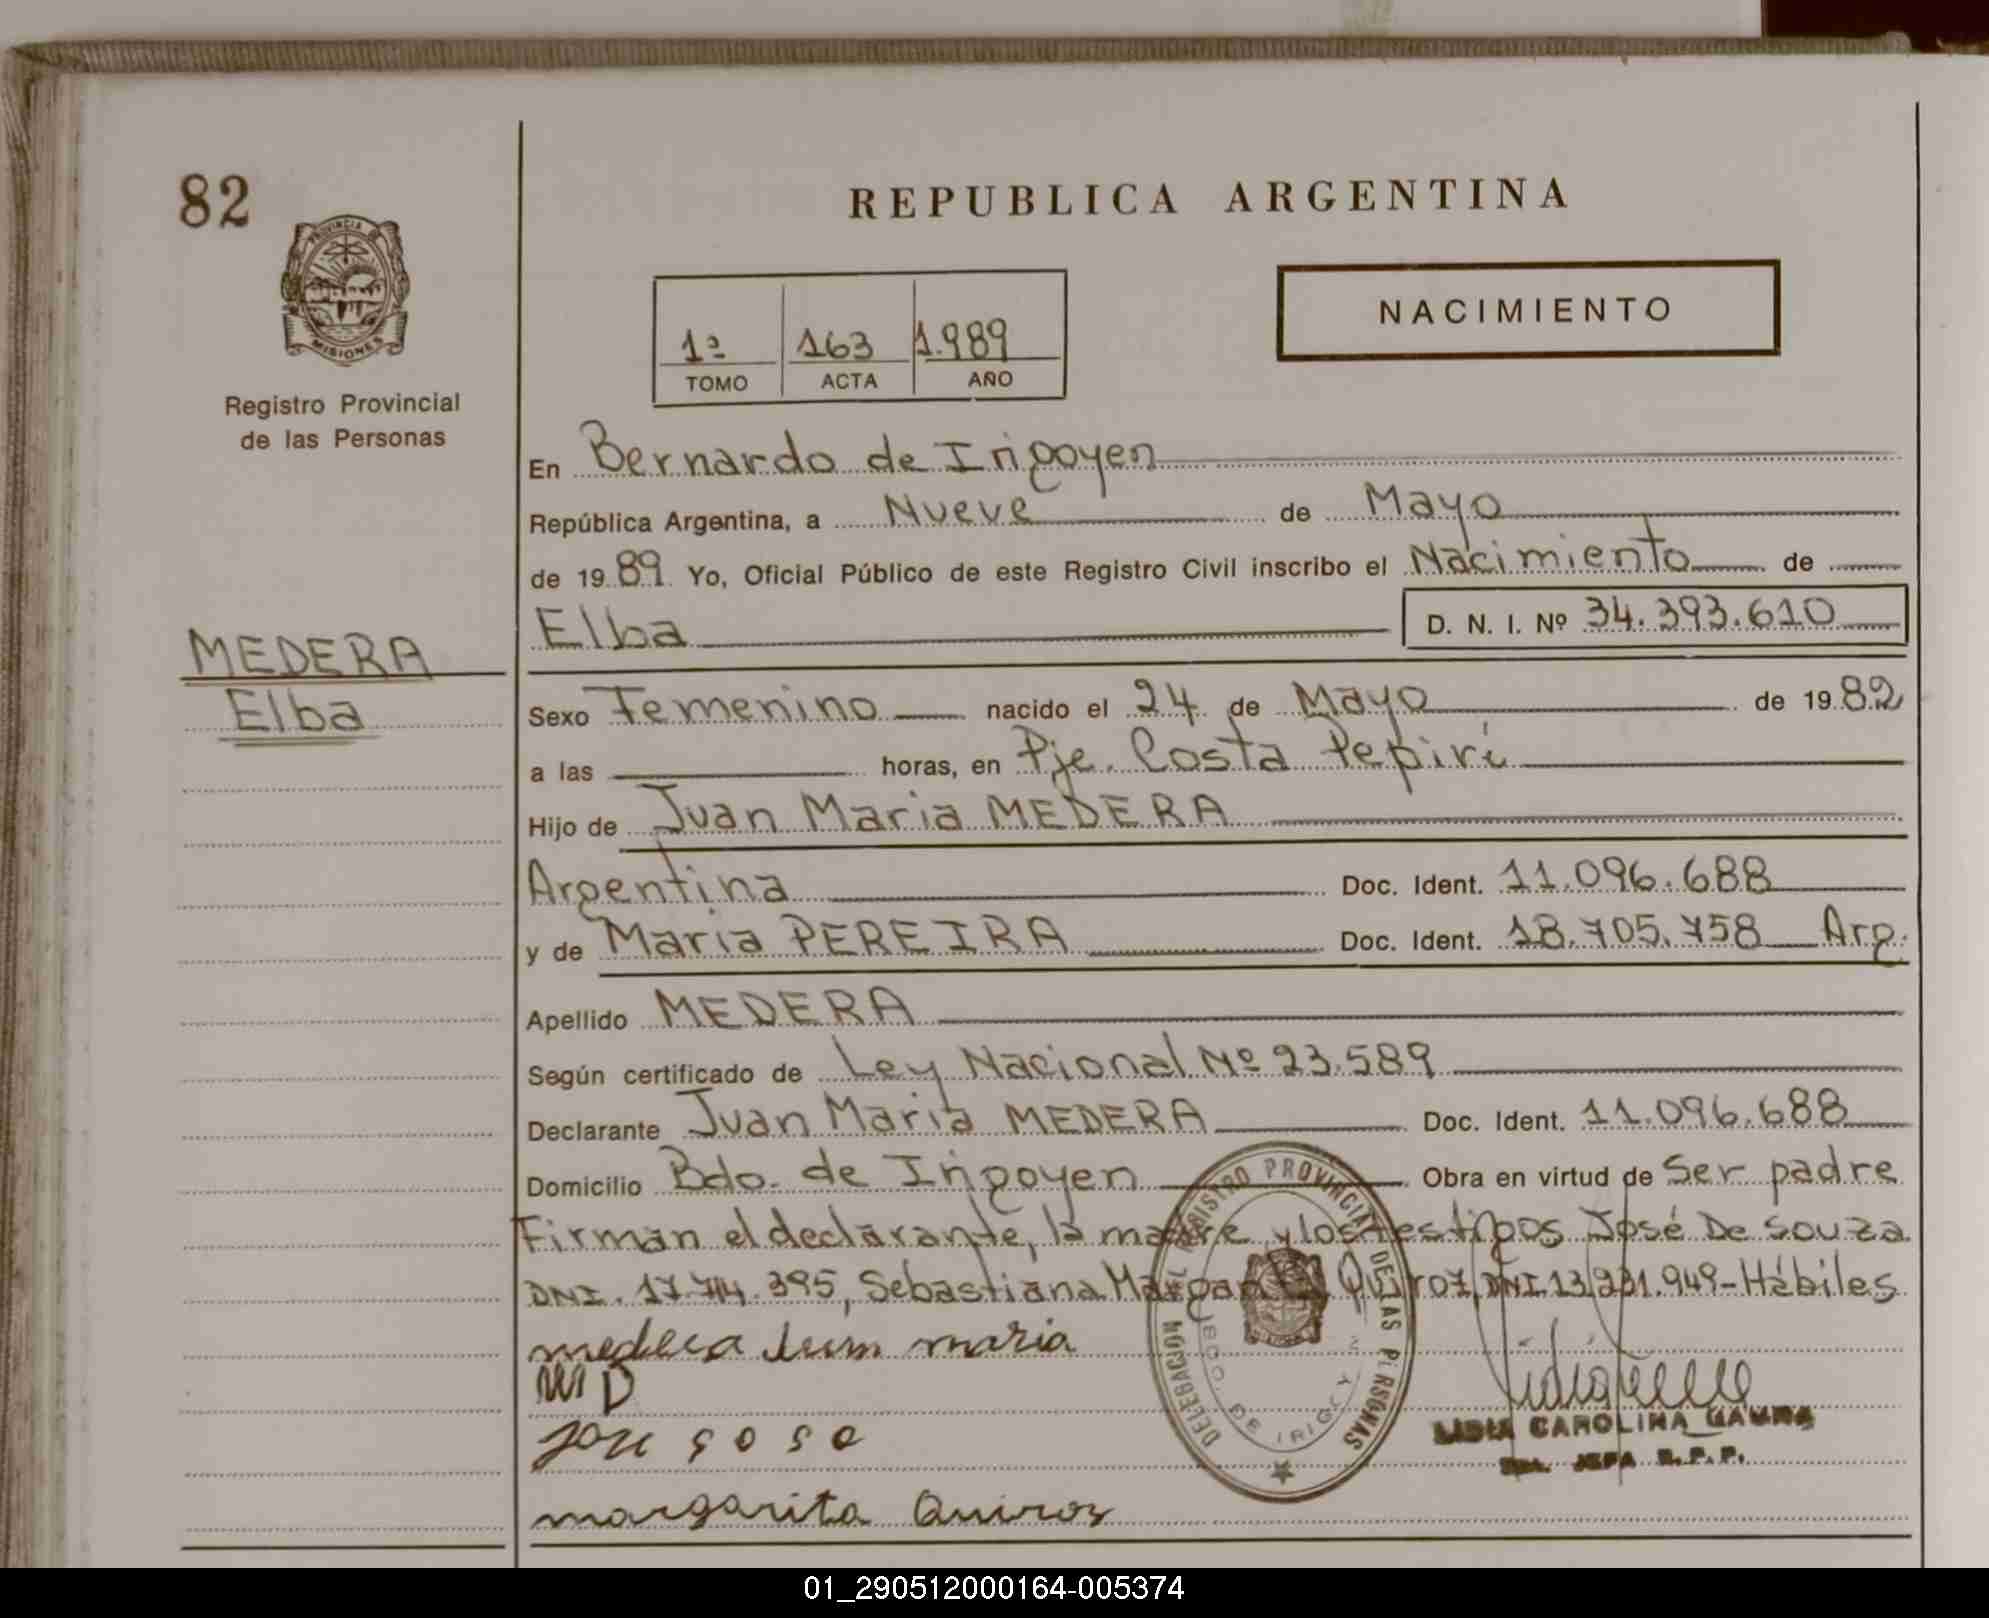 82
REPUBLICA ARGENTINA
PROVINCIA DE
MISIONES
Registro Provincial
de las Personas
NACIMIENTO
1º 163 1.989
TOMO ACTA AÑO
En Bernardo de Irigoyen
República Argentina, a Nueve de Mayo
de 19 89 Yo, Oficial Público de este Registro Civil inscribo el Nacimiento de
Elba D. N. I. Nº 34.393.610
MEDERA
Elba
Sexo Femenino nacido el 24 de Mayo de 19 82
a las horas, en Pje. Costa Pepirí
Hijo de Juan Maria MEDERA
Argentina Doc. Ident. 11.096.688
y de Maria PEREIRA Doc. Ident. 18.705.758 Arg.
Apellido MEDERA
Según certificado de Ley Nacional Nº 23.589
Declarante Juan Maria MEDERA Doc. Ident. 11.096.688
Domicilio Bdo. de Irigoyen Obra en virtud de Ser padre
Firman el declarante, la madre y los testigos José De Souza
DNI. 17.714.395, Sebastiana Margarita Quiroz, DNI. 13.231.949-Hábiles
medera Juan maria
M D
DELEGACION DEL REGISTRO PROVINCIAL DE LAS PERSONAS
BDO. DE IRIGOYEN
LIDIA CAROLINA
JEFA R.P.P.
jose soso
margarita Quiroz
01_290512000164-005374